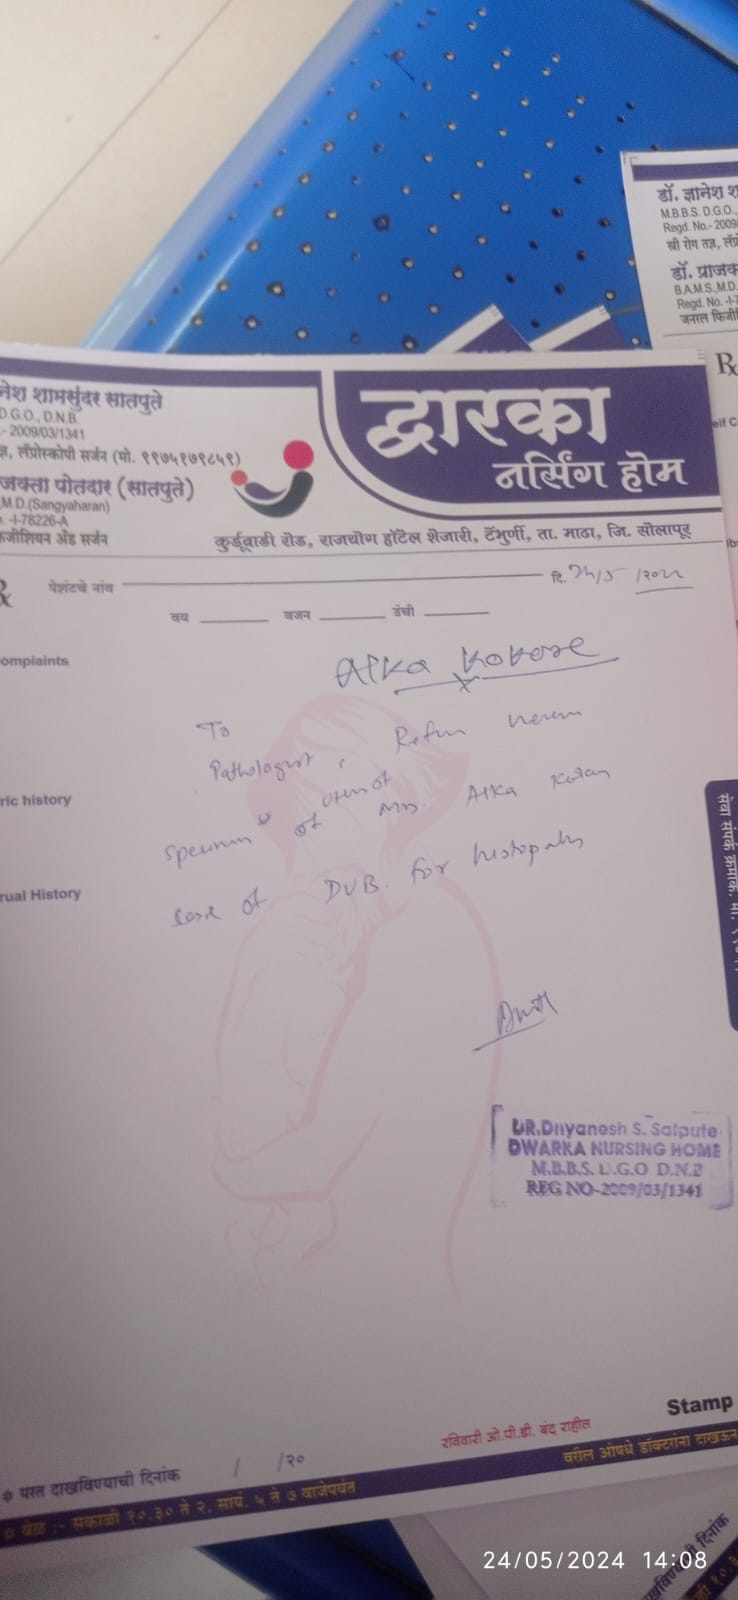 डॉ. ज्ञानेश श
M.B.B.S. D.G.O.,
Regd. No.- 2009/
स्त्री रोग तज्ञ, लॅप्रो
डॉ. प्राजक
B.A.M.S.,M.D.
Regd. No. -I-7
जनरल फिजी
नेश शामसुंदर सातपुते
D.G.O., D.N.B.
- 2009/03/1341
ज्ञ, लॅप्रोस्कोपी सर्जन (मो. ९९७५१७९८५९)
जक्ता पोतदार (सातपुते)
M.D.(Sangyaharan)
. -I-78226-A
फिजीशियन अँड सर्जन
द्वारका
नर्सिंग होम
कुर्डूवाडी रोड, राजयोग हॉटेल शेजारी, टेंभुर्णी, ता. माढा, जि. सोलापूर
पेशंटचे नांव
दि.
वय वजन उंची
omplaints
Alka
To
Pathologist,
Specimen of uterus of Mrs. Alka
ric history
case of DUB. for histopath
rual History
DR.Dnyanesh S. Satpute
DWARKA NURSING HOME
M.B.B.S. D.G.O D.N.B
REG NO-2009/03/1341
Stamp
रविवारी ओ.पी.डी. बंद राहील
* परत दाखविण्याची दिनांक / /२०
वरील औषधे डॉक्टरांना दाखऊन
वेळ :- सकाळी १०.३० ते २. सायं. ५ ते ७ वाजेपर्यंत
24/05/2024 14:08